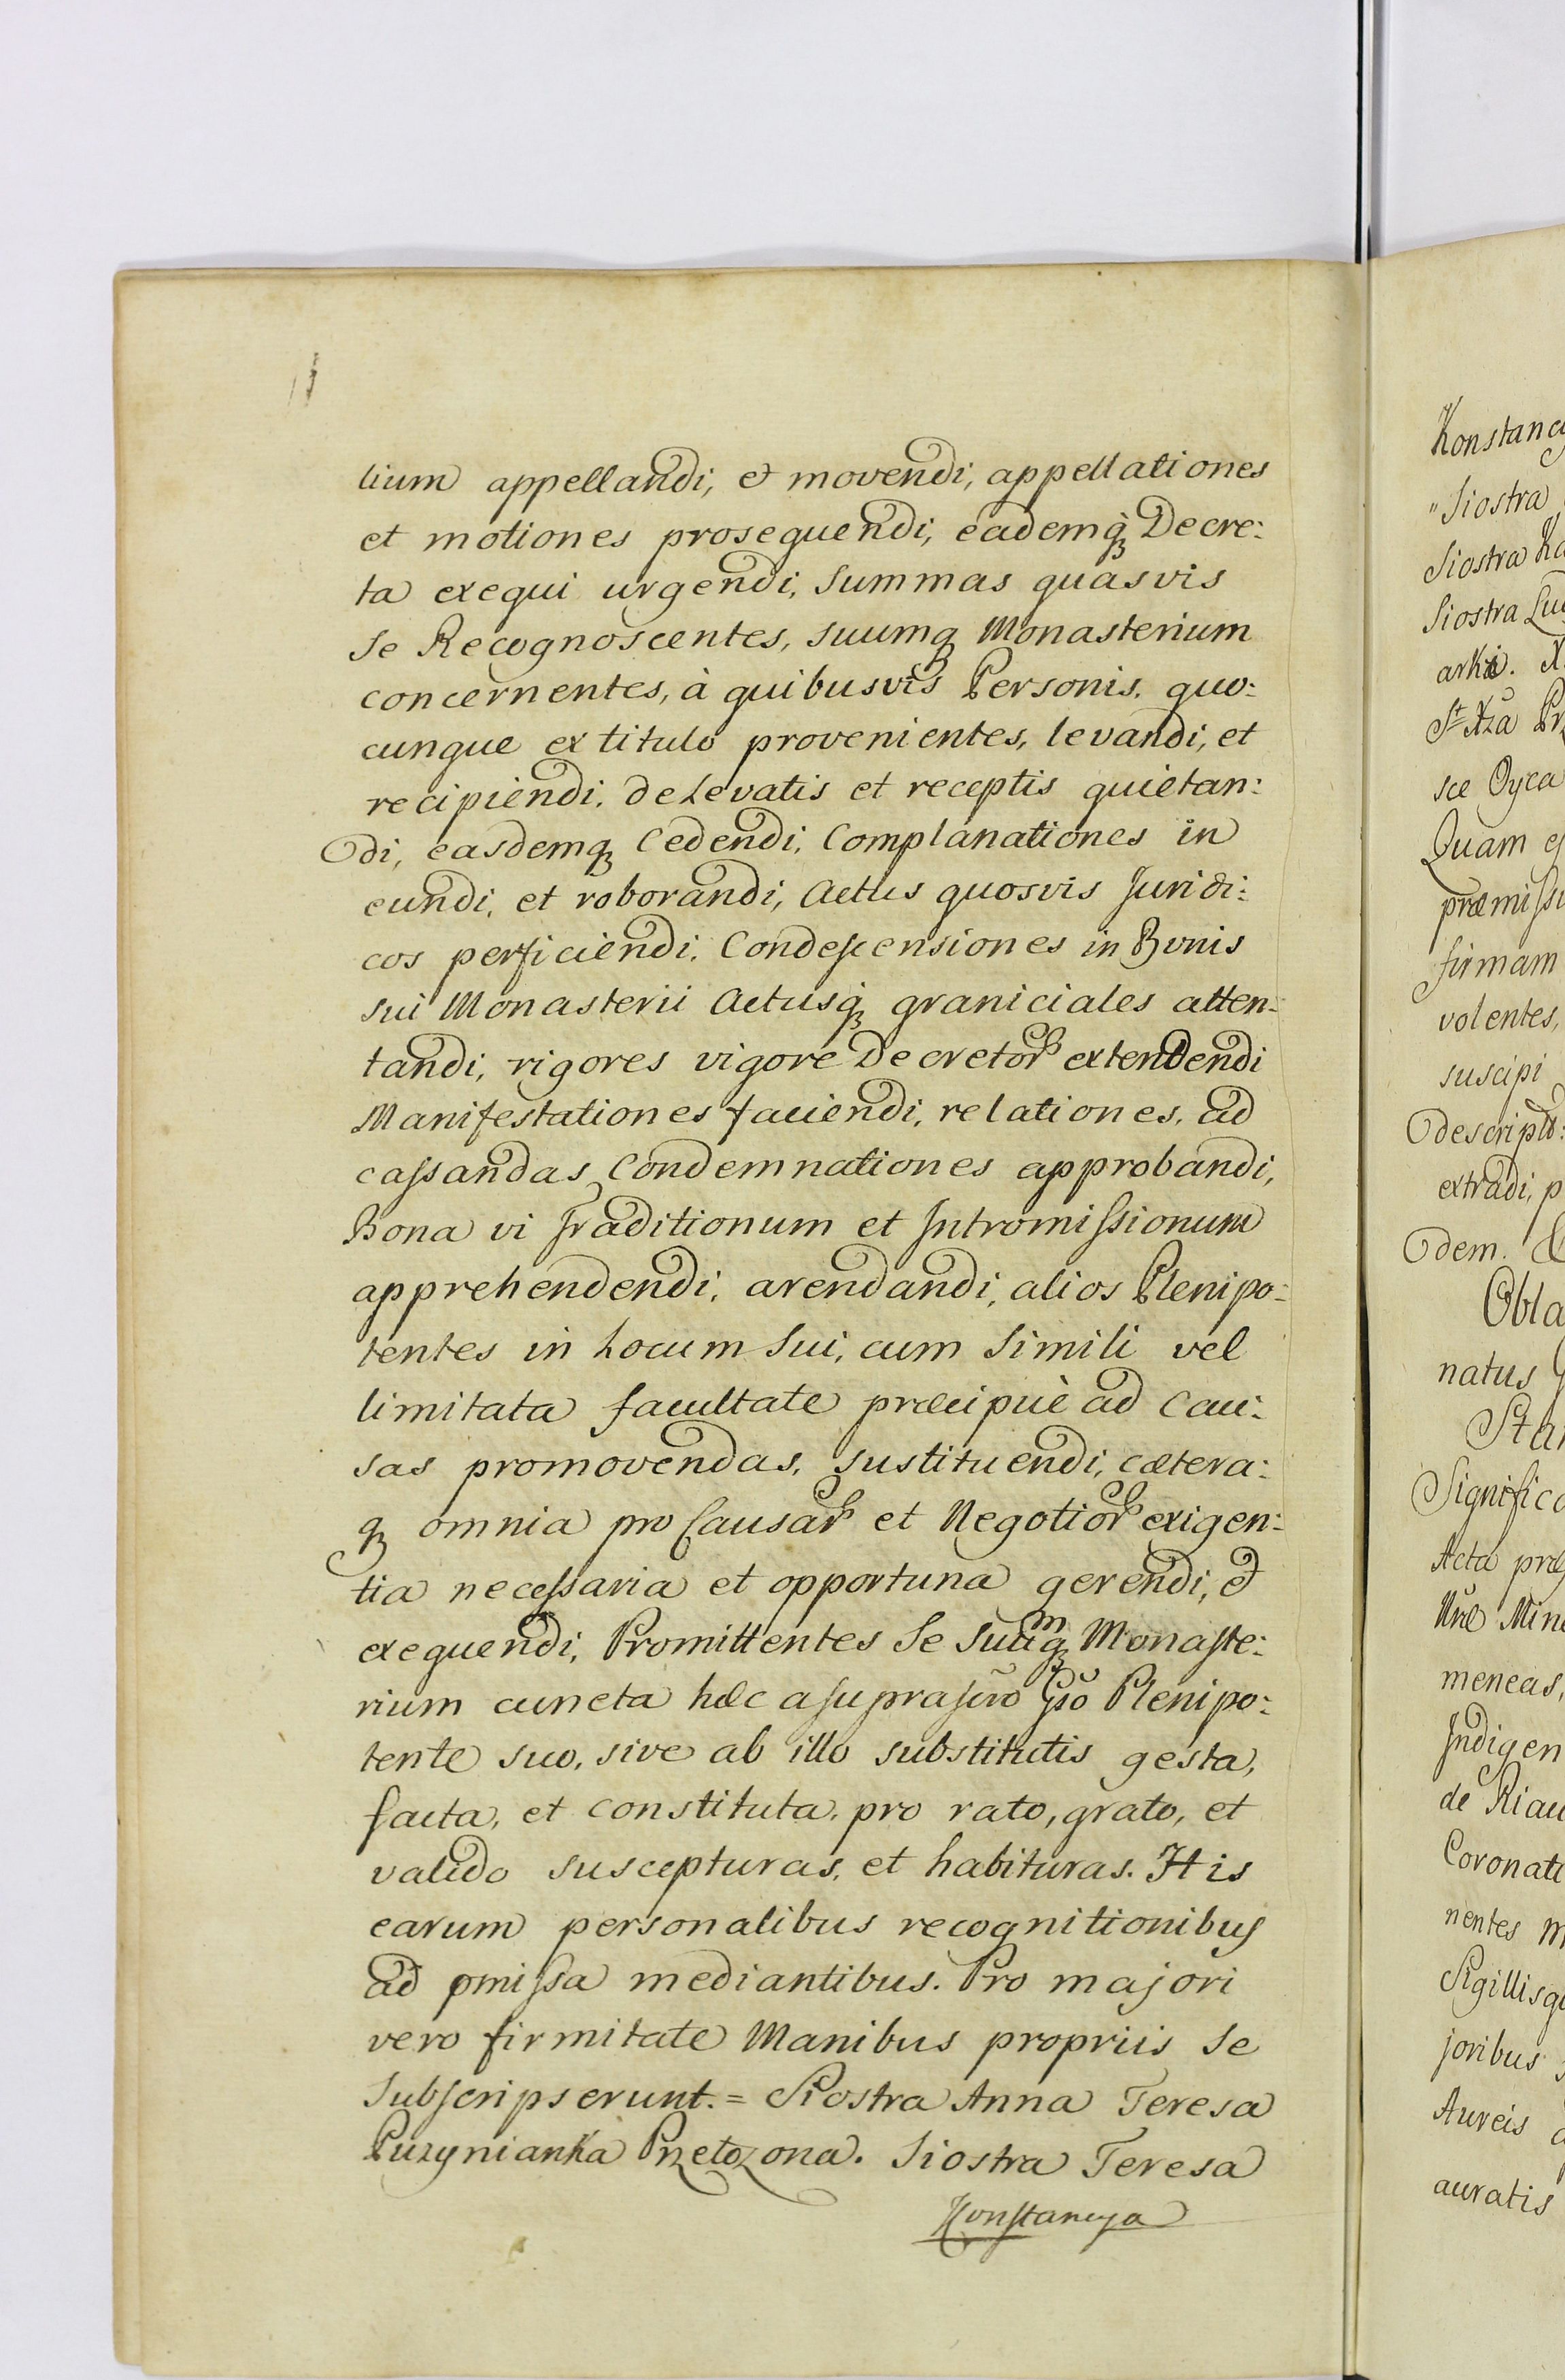 lium appellandi, et movendi, appellationes
et motiones prosequendi, eademq; Decre:
ta exequi urgendi, Summas quasvis
se Recognoscentes, suumq; Monasterium
concernentes, à quibusvis Personis, quo:
cunque ex titulo provenientes, levandi, et
recipiendi, de Levatis et receptis quietan:
di, easdemq; Cedendi, Complanationes in
eundi, et roborandi, Actus quosvis Juridi:
cos perficiendi. Condescensiones in Bonis
sui Monasterii Actusq; graniciales atten:
tandi, rigores vigore Decretor extendendi
Manifestationes faciendi, relationes, ad
cassandas Condemnationes approbandi,
Bona vi Traditionum et Intromissionum
apprehendendi, arendandi, alios Plenipo:
tentes in Locum Sui, cum Simili vel
limitata facultate præcipuè ad Cau:
sas promovendas, sustituendi, cætera:
q; omnia pro Causar et Negotior exigen:
tia necessaria et opportuna gerendi, et
exequendi, Promittentes Se suumq; Monaste:
rium cuncta hæc a suprascrõ Gso Plenipo:
tente suo, sive ab illo substitutis gesta,
facta, et constituta, pro rato, grato, et
valido suscepturas, et habituras. His
earum personalibus recognitionibus
ad pmissa mediantibus. Pro majori
vero firmitate Manibus propriis se
subscripserunt. = Siostra Anna Teresa
Puzynianka Przełożona. Siostra Teresa
Konstancya
Konstancy
"Siostra
Siostra Ka
Siostra Lu
arki. X
sce Oyca
Quam e
præmissi
firmam
volentes,
suscipi
descripto:
extradi, p
dem.
Obla
natus
Sta
Significa
Acta præ
Nrẽ Min
meneas,
Indigen
de Kiau
Coronati
nentes m
Sigillisq
joribus
Aureis
auratis